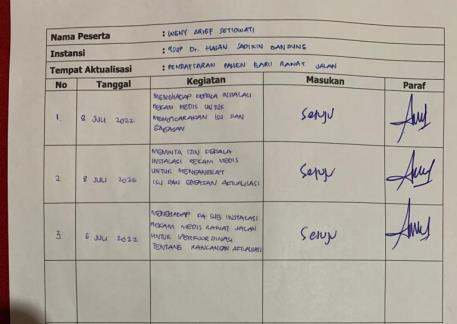 Nama Peserta : WENY ARIEF SETIOWATI
Instansi : RSUP Dr. HASAN SADIKIN BANDUNG
Tempat Aktualisasi : PENDAFTARAN PASIEN BARU RAWAT JALAN
No Tanggal Kegiatan Masukan Paraf
1. 8 JULI 2022 MENGHADAP KEPALA INSTALASI REKAM MEDIS UNTUK MEMBICARAKAN ISU DAN GAGASAN Setuju
2 8 JULI 2022 MEMINTA IZIN KEPALA INSTALASI REKAM MEDIS UNTUK MENGANGKAT ISU DAN GAGASAN AKTUALISASI Setuju
3. 6 JULI 2022 MENGHADAP KA SUB INSTALASI REKAM MEDIS RAWAT JALAN UNTUK BERKOORDINASI TENTANG RANCANGAN AKTUALISASI Setuju